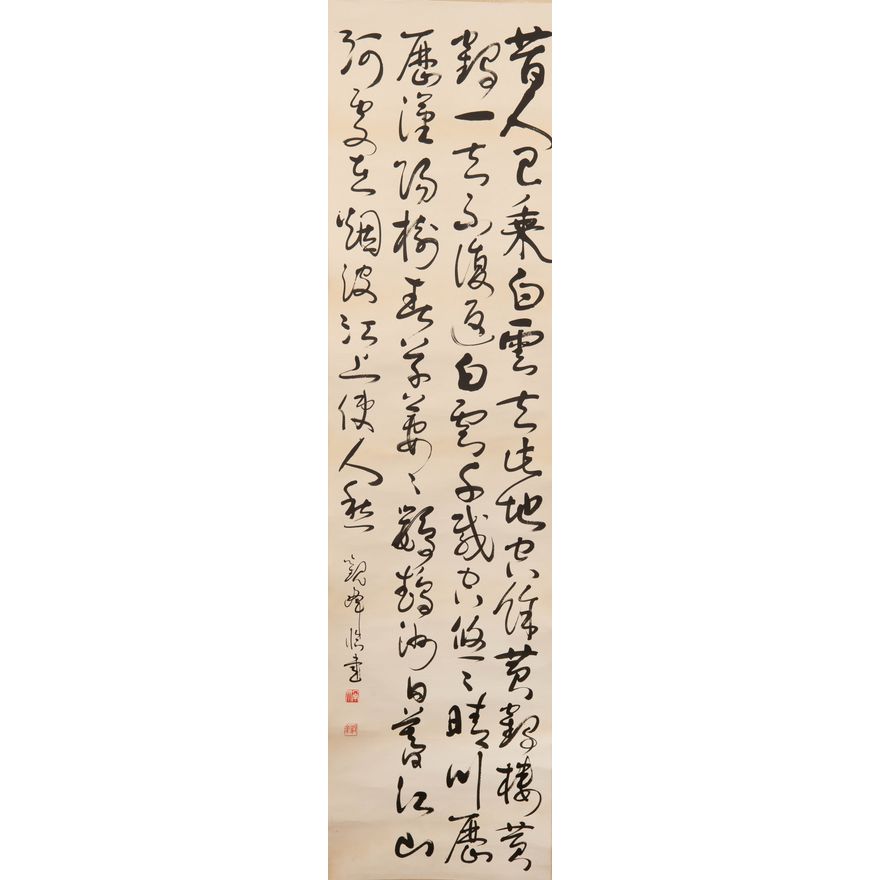 昔人已乘白雲去此地空餘黄鶴樓黄
鶴一去不復返白雲千載空悠々晴川歷
歷漢陽樹春草萋々鸚鵡洲日暮江山
何處在烟波江上使人愁
觀峰臨書